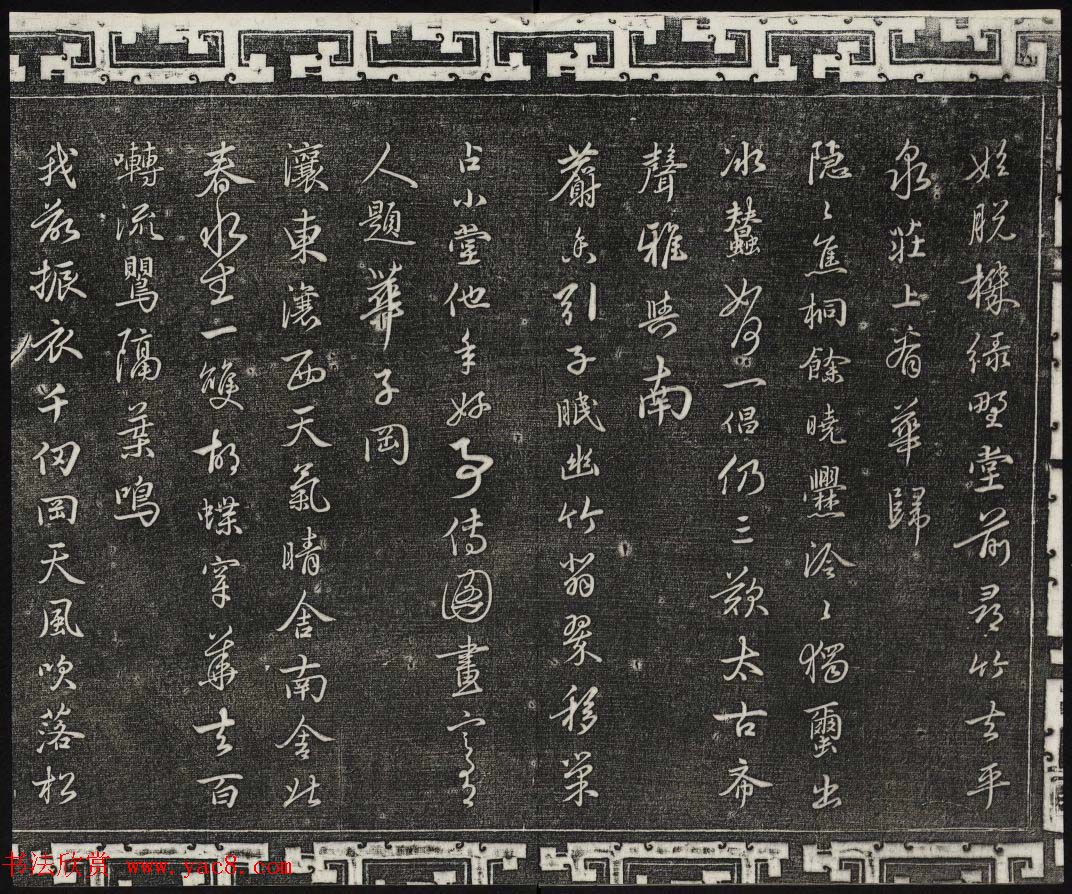 始脱機緑野堂前尋竹去平
泉莊上看華歸
隠〻焦桐餘曉爨泠〻獨蠒出
冰蠶如何一倡仍三歎太古希
聲雅與南
麝香引子眠幽竹翡翠移巢
占小堂他年好事傳圖畫
人題華子岡
瀼東瀼西天氣晴舍南舍北
春水生一雙胡蝶穿華去百
囀流鸎隔葉鳴
我欲振衣千仞岡天風吹落松
书法欣赏 www.yac8.com